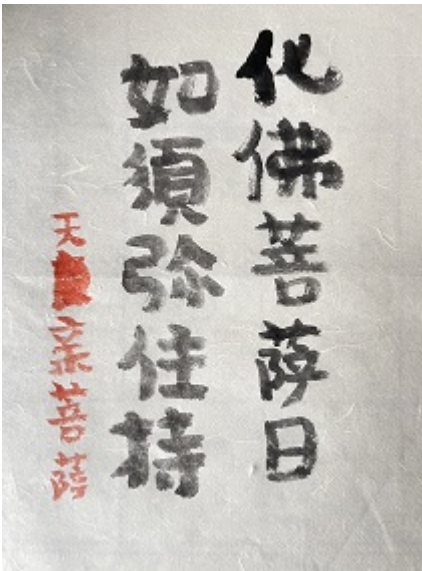 化佛菩薩日
如須弥住持
天親菩薩